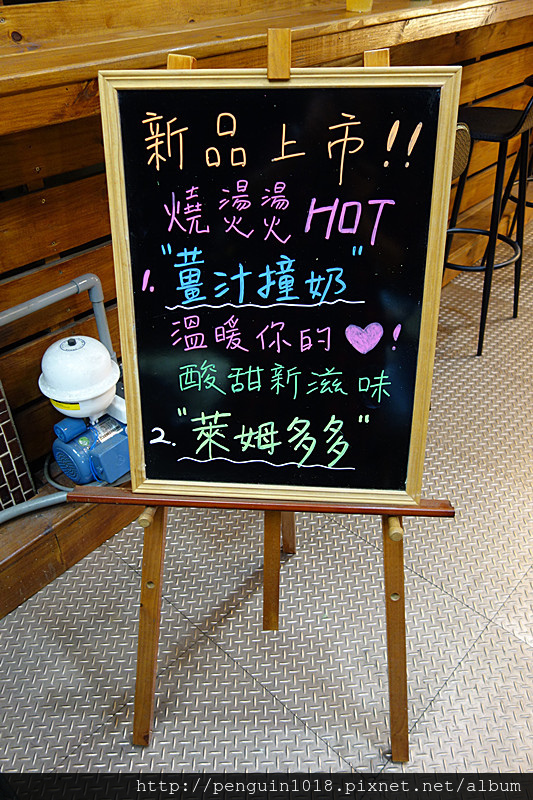 新品上市!!
燒燙燙HOT
1. "薑汁撞奶"
溫暖你的♥!
酸甜新滋味
2. "萊姆多多"
http://penguin1018.pixnet.net/album